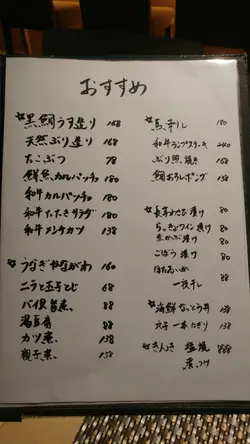 おすすめ
☆黒鯛うす造り 168
天然ぶり造り 168
たこぶつ 78
鮮魚カルパッチョ 180
和牛カルパッチョ 180
和牛たたきサラダ 180
和牛メンチカツ 138
☆うなぎやながわ 160
ニラと玉子とじ 68
バイ貝旨煮 88
湯豆腐 88
カツ煮 138
親子煮 138
☆馬刺し 180
和牛ランプステーキ 240
ぶり照焼き 168
鯛おろしポンズ 138
☆長芋わさび漬け 80
らっきょワイン漬け 80
赤かぶ漬け 80
ごぼう漬け 80
ほたるいか
一夜干し 88
☆海鮮なっとう丼 138
穴子一本にぎり 138
☆きんき 塩焼 888
煮つけ